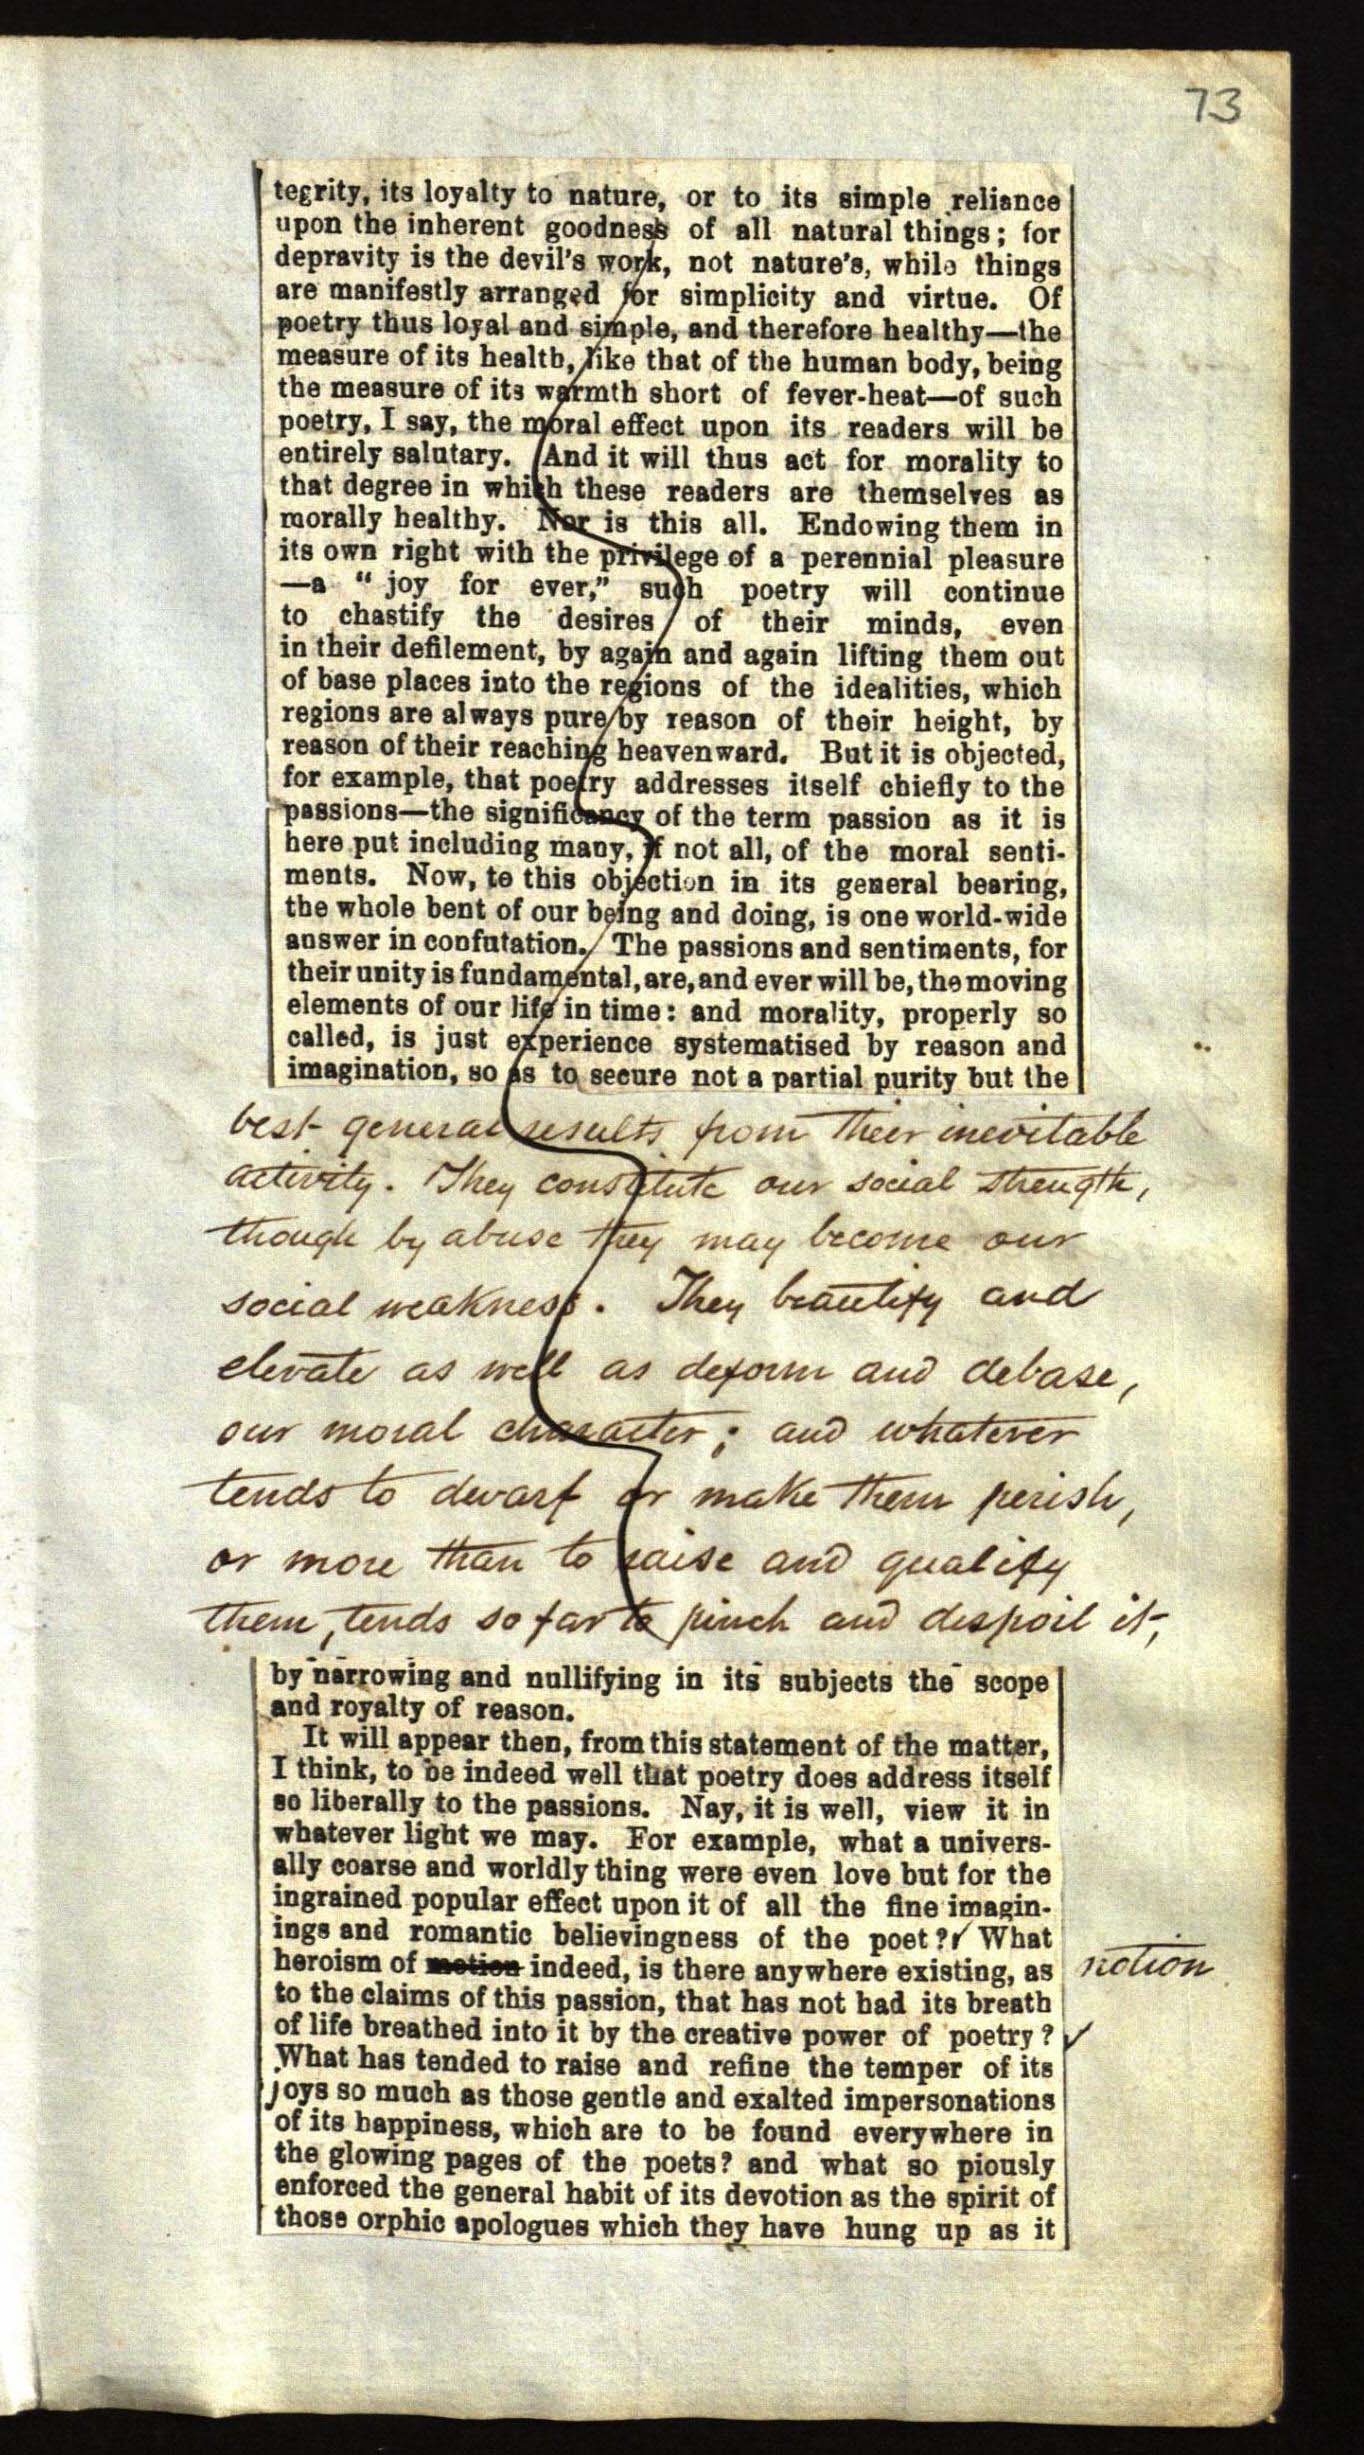 73
tegrity, its loyalty to nature, or to its simple reliance
upon the inherent goodness of all natural things; for
depravity is the devil's work, not nature's, while things
are manifestly arranged for simplicity and virtue. Of
poetry thus loyal and simple, and therefore healthy—the
measure of its health, like that of the human body, being
the measure of its warmth short of fever-heat—of such
poetry, I say, the moral effect upon its readers will be
entirely salutary. And it will thus act for morality to
that degree in which these readers are themselves as
morally healthy. Nor is this all. Endowing them in
its own right with the privilege of a perennial pleasure
—a "joy for ever," such poetry will continue
to chastify the desires of their minds, even
in their defilement, by again and again lifting them out
of base places into the regions of the idealities, which
regions are always pure by reason of their height, by
reason of their reaching heavenward. But it is objected,
for example, that poetry addresses itself chiefly to the
passions—the significancy of the term passion as it is
here put including many, if not all, of the moral senti-
ments. Now, to this objection in its general bearing,
the whole bent of our being and doing, is one world-wide
answer in confutation. The passions and sentiments, for
their unity is fundamental, are, and ever will be, the moving
elements of our life in time: and morality, properly so
called, is just experience systematised by reason and
imagination, so as to secure not a partial purity but the
best general results from their inevitable
activity. They constitute our social strength,
though by abuse they may become our
social weakness. They beautify and
elevate as well as deform and debase,
our moral character; and whatever
tends to dwarf or make them perish,
or more than to raise and qualify
them, tends so far to pinch and despoil it,
by narrowing and nullifying in its subjects the scope
and royalty of reason.
It will appear then, from this statement of the matter,
I think, to be indeed well that poetry does address itself
so liberally to the passions. Nay, it is well, view it in
whatever light we may. For example, what a univers-
ally coarse and worldly thing were even love but for the
ingrained popular effect upon it of all the fine imagin-
ings and romantic believingness of the poet? What
heroism of motion indeed, is there anywhere existing, as notion
to the claims of this passion, that has not had its breath
of life breathed into it by the creative power of poetry?
What has tended to raise and refine the temper of its
joys so much as those gentle and exalted impersonations
of its happiness, which are to be found everywhere in
the glowing pages of the poets? and what so piously
enforced the general habit of its devotion as the spirit of
those orphic apologues which they have hung up as it